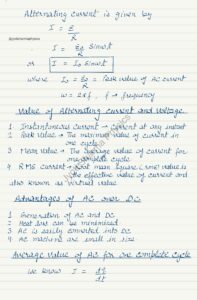 Alternating current is given by
I = E/R
I = E₀/R Sinωt
or I = I₀ Sinωt
where I₀ = E₀/R = Peak value of ac current
ω = 2πf, f → frequency
Value of Alternating current and voltage
1 Instantaneous current → current at any instant
2 Peak value → The maximum value of current in
one cycle
3 Mean value → The average value of current for
one complete cycle
4 RMS current → Root mean square (rms) value is
the effective value of current and
also known as virtual value
Advantages of AC over DC
1 Generation of AC and DC
2 Heat loss can be minimised
3 AC is easily converted into DC
4 AC machine are small in size
Average Value of AC for one complete cycle
We know I = dq/dt